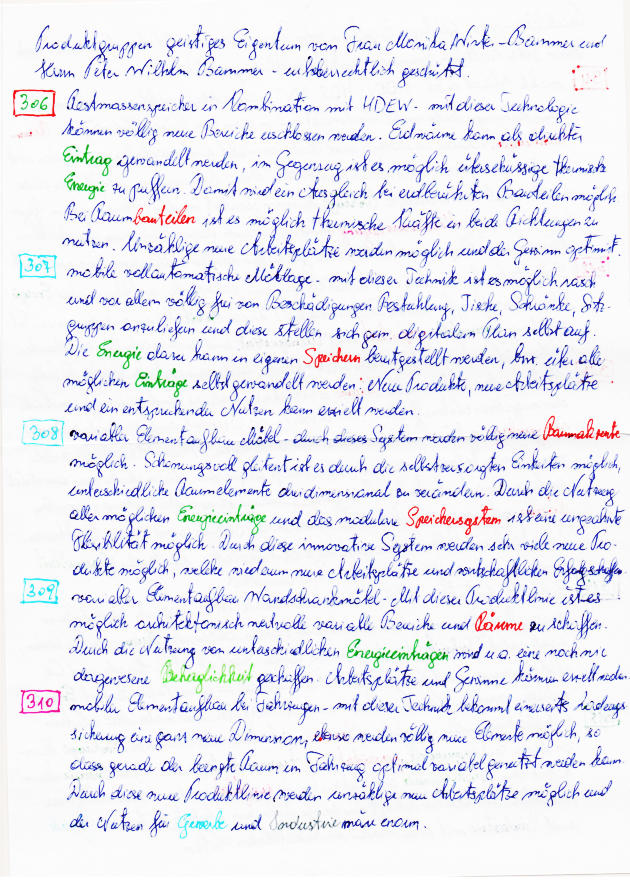 Produktgruppen geistiges Eigentum von Frau Monika Wirte-Bammer und
Herrn Peter Wilhelm Bammer - urheberrechtlich geschützt.
306 Restmassenspeicher in Kombination mit HDEW - mit dieser Technologie
können völlig neue Bereiche erschlossen werden. Erdwärme kann als direkter
Eintrag gewandelt werden, im Gegenzug ist es möglich überschüssige thermische
Energie zu puffern. Damit wird ein Ausgleich bei erdberührten Bauteilen möglich
Bei Raumbauteilen ist es möglich thermische Kräfte in beide Richtungen zu
nutzen. Unzählige neue Arbeitsplätze werden möglich und der Gewinn optimiert.
307 mobile vollautomatische Möblage - mit dieser Technik ist es möglich rasch
und vor allem völlig frei von Beschädigungen Bestuhlung, Tische, Schränke, Sitz-
gruppen anzuliefern und diese stellen sich gem. digitalem Plan selbst auf.
Die Energie dazu kann in eigenen Speichern bereitgestellt werden, bzw. über alle
möglichen Einträge selbst gewandelt werden. Neue Produkte, neue Arbeitsplätze
und ein entsprechender Nutzen kann erzielt werden.
308 variabler Elementaufbau Möbel - durch dieses System werden völlig neue Raumakzente
möglich. Schwungvoll gleitend ist es durch die selbstversorgten Einheiten möglich,
unterschiedliche Raumelemente dreidimensional zu verändern. Durch die Nutzung
aller möglichen Energieeinträge und das modulare Speichersystem ist eine ungeahnte
Flexibilität möglich. Durch diese innovative System werden sehr viele neue Pro-
dukte möglich, welche wiederum neue Arbeitsplätze und wirtschaftlichen Erfolg schaffen
309 variabler Elementaufbau Wandschrankmöbel - Mit dieser Produktlinie ist es
möglich architektonisch wertvolle variable Bereiche und Räume zu schaffen.
Durch die Nutzung von unterschiedlichen Energieeinträgen wird u.a. eine noch nie
dagewesene Behaglichkeit geschaffen. Arbeitsplätze und Gewinne können erzielt werden.
310 mobiler Elementaufbau bei Fahrzeugen - mit dieser Technik bekommt einerseits
sicherung eine ganz neue Dimension, ebenso werden völlig neue Elemente möglich, so
dass gerade der beengte Raum im Fahrzeug optimal variabel genutzt werden kann.
Durch diese neue Produktlinie werden unzählige neue Arbeitsplätze möglich und
der Nutzen für Gewerbe und Industrie wäre enorm.